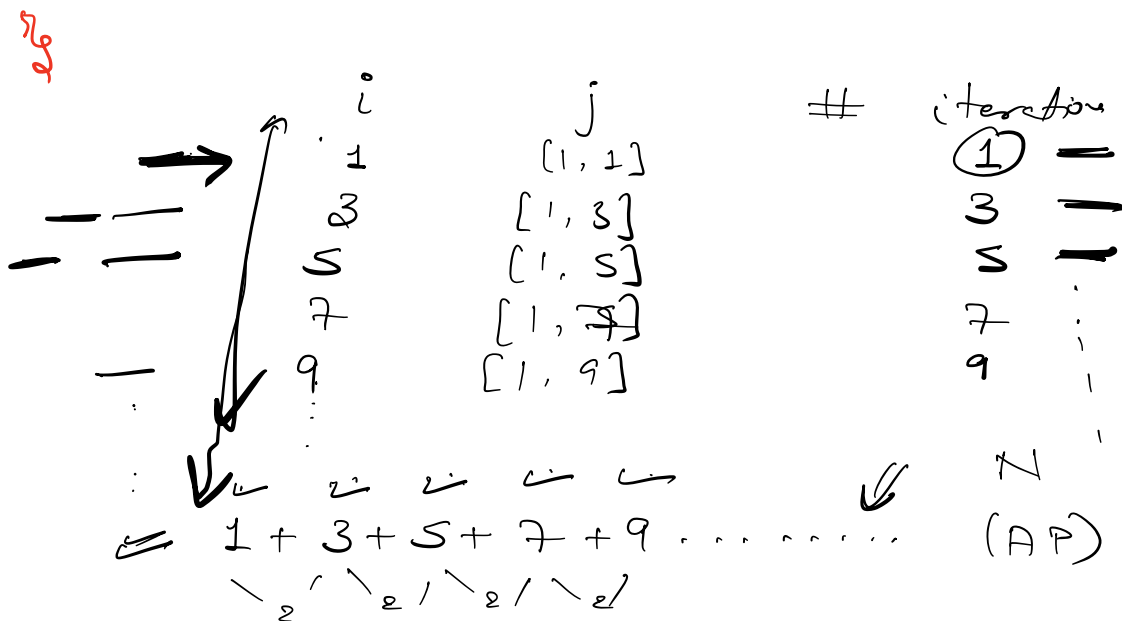 i j # iteration
1 [1, 1] 1
3 [1, 3] 3
5 [1, 5] 5
7 [1, 7] 7
9 [1, 9] 9
N
1 + 3 + 5 + 7 + 9 ......... (AP)
2 2 2 2